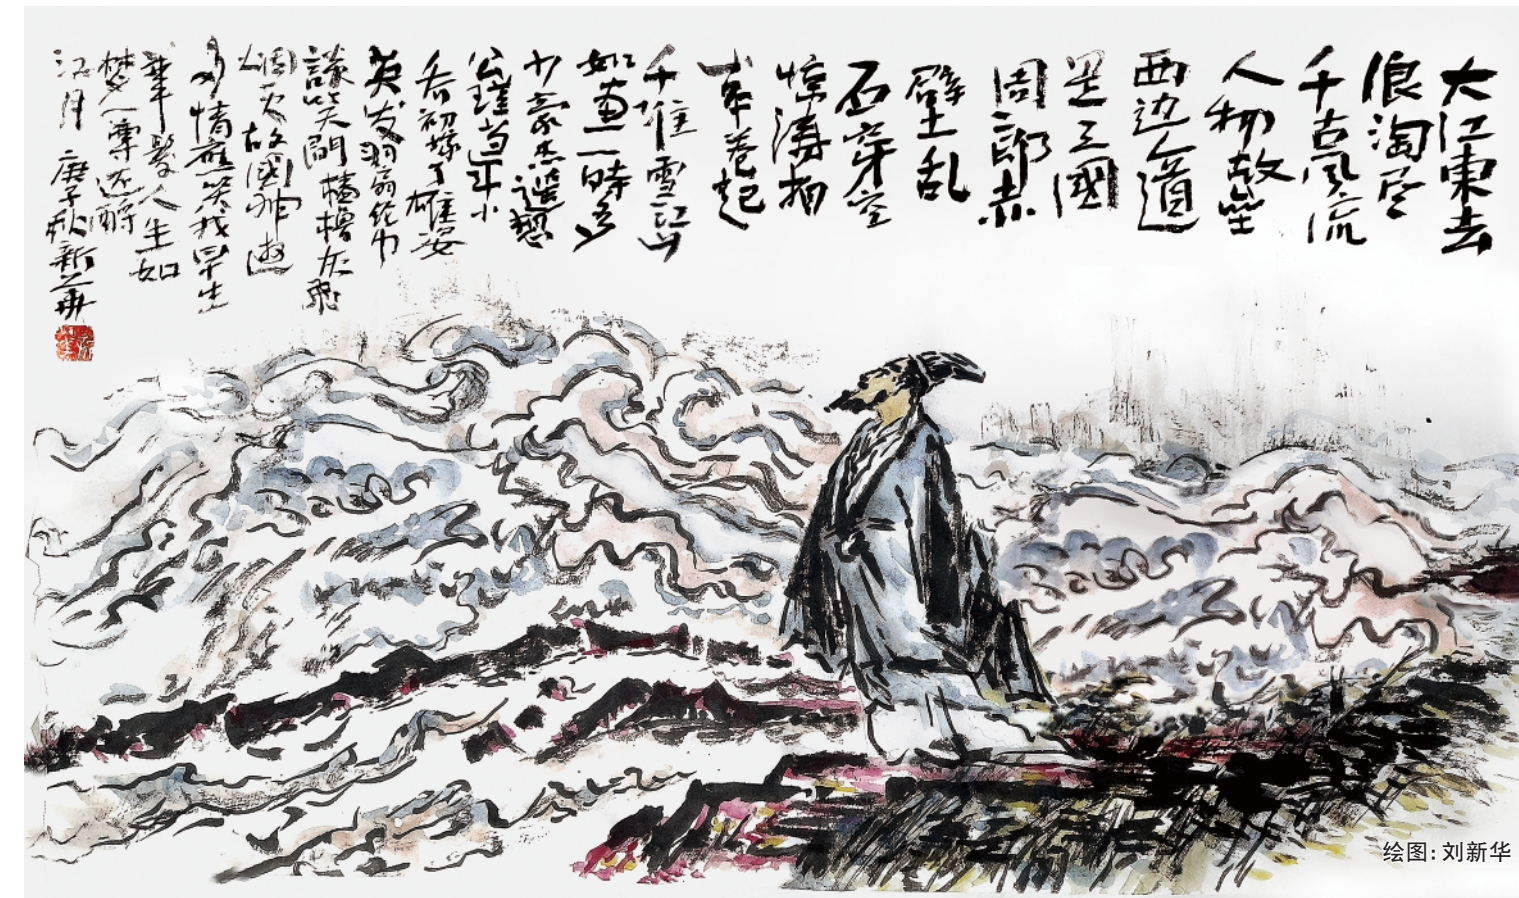 大江東去
浪淘尽
千古風流
人物故壘
西边人道
是三國
周郎赤
壁乱
石穿空
惊涛拍
岸卷起
千堆雪江山
如画一時多
少豪杰遥想
公瑾当年小
乔初嫁了雄姿
英发羽扇纶巾
談笑間檣櫓灰飛
烟灭故國神遊
多情應笑我早生
華髮人生如
梦一尊还酹
江月 庚子秋新華
绘图：刘新华